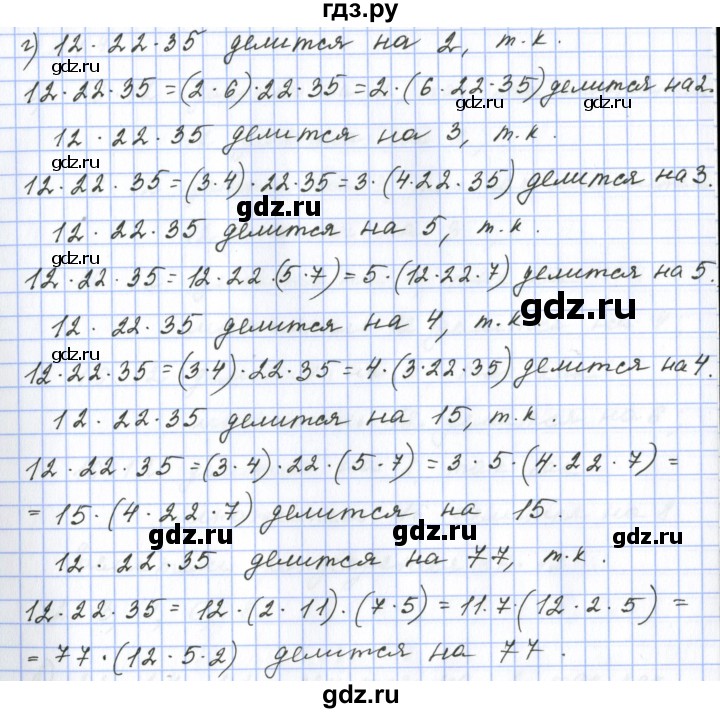 гдз.ру
г) 12 · 22 · 35 делится на 2, т.к.
gdz.ru
12 · 22 · 35 = (2 · 6) · 22 · 35 = 2 · (6 · 22 · 35) делится на 2.
gdz.ru gdz.ru
12 · 22 · 35 делится на 3, т.к.
gdz.ru
12 · 22 · 35 = (3 · 4) · 22 · 35 = 3 · (4 · 22 · 35) делится на 3.
gdz.ru
12 · 22 · 35 делится на 5, т.к.
gdz.ru
12 · 22 · 35 = 12 · 22 · (5 · 7) = 5 · (12 · 22 · 7) делится на 5.
gdz.ru
12 · 22 · 35 делится на 4, т.к.
gdz.ru
12 · 22 · 35 = (3 · 4) · 22 · 35 = 4 · (3 · 22 · 35) делится на 4.
12 · 22 · 35 делится на 15, т.к.
12 · 22 · 35 = (3 · 4) · 22 · (5 · 7) = 3 · 5 · (4 · 22 · 7) =
= 15 · (4 · 22 · 7) делится на 15.
gdz.ru gdz.ru gdz.ru
12 · 22 · 35 делится на 77, т.к.
12 · 22 · 35 = 12 · (2 · 11) · (7 · 5) = 11 · 7 · (12 · 2 · 5) =
= 77 · (12 · 5 · 2) делится на 77.
gdz.ru